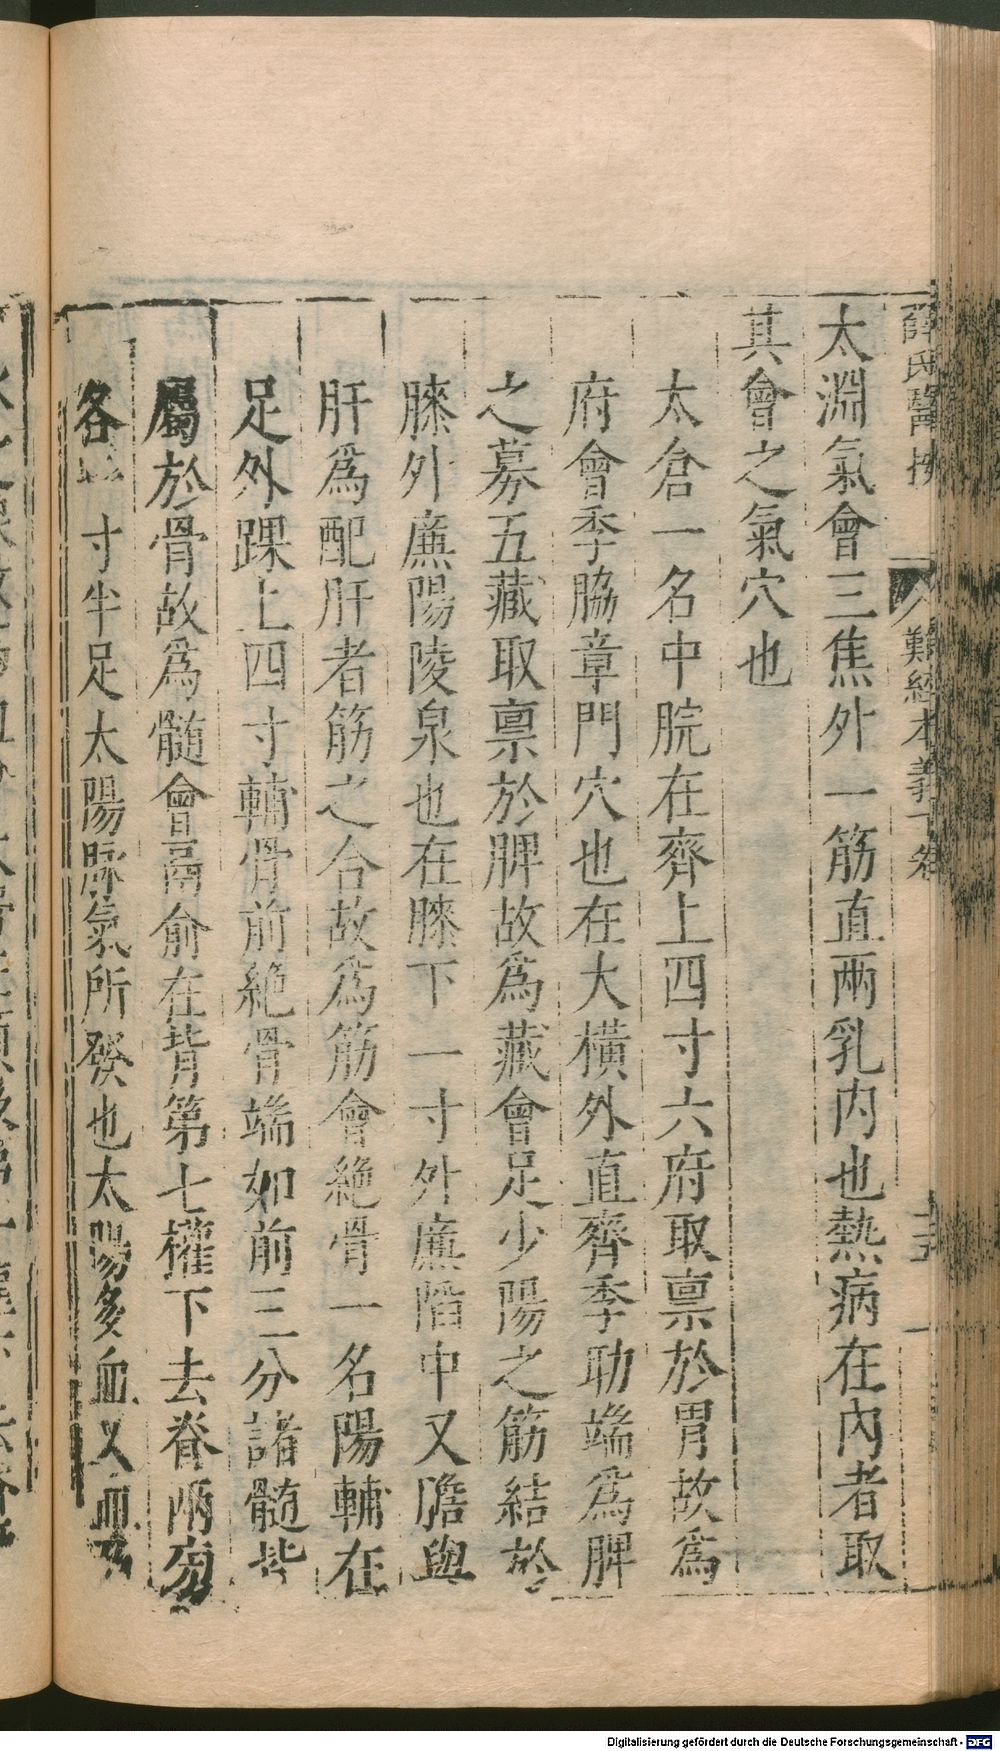 薛氏醫按 難經本義下卷
太淵氣會三焦外一筋直兩乳内也熱病在內者取
其會之氣穴也
太倉一名中脘在齊上四寸六府取禀於胃故爲
府會季脇章門穴也在大橫外直齊季肋端爲脾
之募五藏取禀於脾故爲藏會足少陽之筋結於
膝外廉陽陵泉也在膝下一寸外廉䧟中又膽與
肝爲配肝者筋之合故爲筋會絶骨一名陽輔在
足外踝上四寸輔骨前絶骨端如前三分諸髓皆
屬於骨故爲髓會鬲俞在背第七權下去脊兩旁
各 寸半足太陽脉氣所發也太陽多血又血
Digitalisierung gefördert durch die Deutsche Forschungsgemeinschaft - DFG